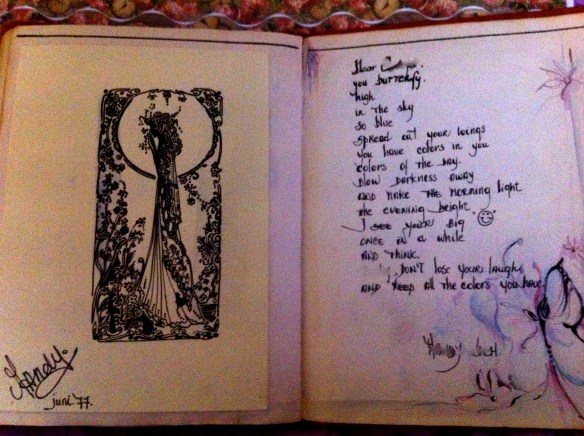 june '77.
Dear
you butterfly.
high
in the sky
so blue
spread out your wings
you have colors in you
colors of the day.
blow darkness away
AND make the morning light
the evening bright
I see you're big
once in a while
AND think.
DON'T lose your laugh
AND keep all the colors you have.